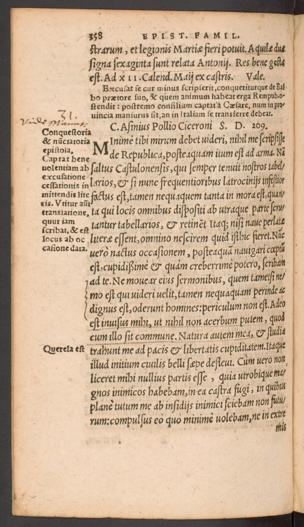 358 EPIST. FAMIL.
strarum, et legionis Martiæ fieri potuit. Aquilæ duæ
signa sexaginta sunt relata Antonij. Res bene gesta
est. Ad XII. Calend. Maij ex castris. Vale.
Excusat se cur minus scripserit, conqueriturque de Bal
bo prætore suo, & quem animum habeat erga Rempub.
ostendit: postremo consilium captat à Cæsare, num in pro
uincia mansurus sit, an in Italiam se transferre debeat.
31.
C. Asinius Pollio Ciceroni S. D. 209.
Conquestoria
& nūciatoria
epistola.
Captat bene
uolentiam ab
excusatione
cessationis in
mittendis lite
ris. Vtitur aūt
translatione,
quur iam
scribat, & est
locus ab oc
casione data.
Minime tibi mirum debet uideri, nihil me scripsisse
de Republica, postea quam itum est ad arma. Nā
saltus Castulonensis, qui semper tenuit nostros tabel
larios, & si nunc frequentioribus latrocinijs infestior
factus est, tamen nequaquam tanta in mora est, quan
ta qui locis omnibus dispositi ab utraque parte scru
tantur tabellarios, & retinēt. Itaque nisi naue perlatæ
literæ essent, omnino nescirem quid istic fieret. Nūc
uerò nactus occasionem, postea quā nauigari cœptū
est: cupidißimè & quàm creberrimè potero, scribam
ad te. Ne mouear eius sermonibus, quem tametsi ne
mo est qui uideri uelit, tamen nequaquam perinde ac
dignus est, oderunt homines: periculum non est. Adeo
est inuisus mihi, ut nihil non acerbum putem, quod
cum illo sit commune. Natura autem mea, & studia
Querela est
trahunt me ad pacis & libertatis cupiditatem. Itaque
illud initium ciuilis belli sæpe defleui. Cùm uero non
liceret mihi nullius partis esse, quia utrobique ma-
gnos inimicos habebam, in ea castra fugi, in quibus
planè tutum me ab insidijs inimici sciebam non futu
rum: compulsus eo quò minimè uolebam, ne in extre
mis